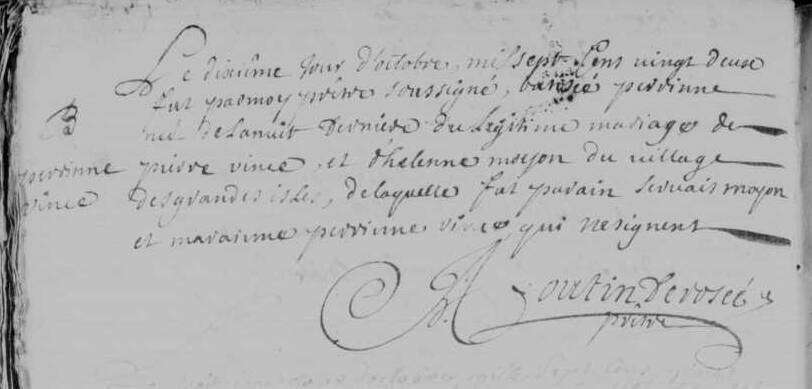 Le dixiême jour d'octobre, mil sept Cens vingt deux
fut par moy prêtre soussigné, batisée perrinne
B
néé de la nuit derniere du legitime mariage de
perrinne
pierre vince, et d'helenne moyon du village
vince
des grandes isles, de laquelle fut parain servais moyon
et maraine perrinne vince qui ne signent
prêtre